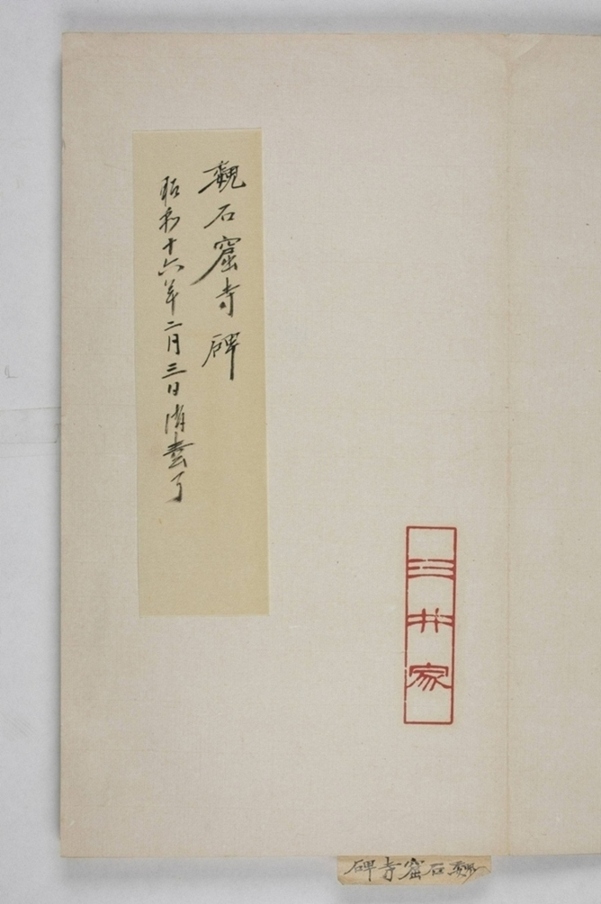 魏石窟寺碑
昭和十六年二月三日消毒了
三井家
魏石窟寺碑